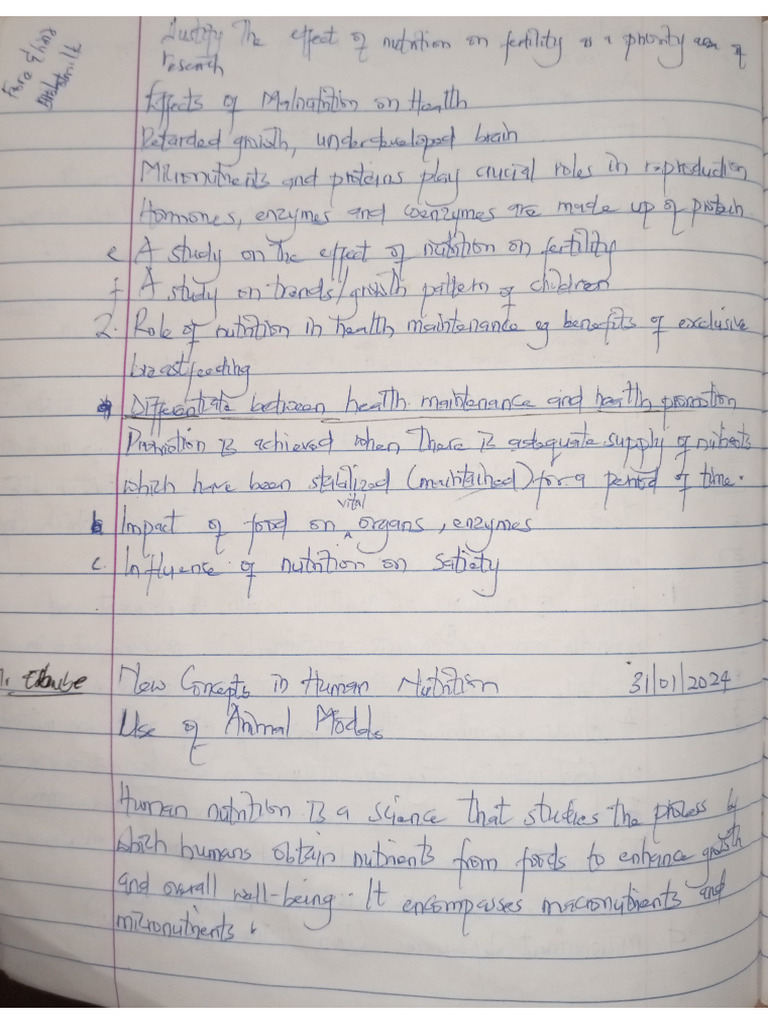 Justify The effect of nutrition on fertility as a priority area of
research
Effects of Malnutrition on Health
Retarded growth, underdeveloped brain
Micronutrients and proteins play crucial roles in reproduction
Hormones, enzymes and coenzymes are made up of protein
e A study on the effect of nutrition on fertility
f A study on trends/growth pattern of children
2. Role of nutrition in health maintenance eg benefits of exclusive
breastfeeding
a Differentiate between health maintenance and health promotion
Promotion is achieved when there is adequate supply of nutrients
which have been stabilized (maintained) for a period of time.
b Impact of food on vital organs, enzymes
c. Influence of nutrition on satiety
New Concepts in Human Nutrition 31/01/2024
Use of Animal Models
Human nutrition is a science that studies the process by
which humans obtain nutrients from foods to enhance growth
and overall well-being. It encompasses macronutrients and
micronutrients.